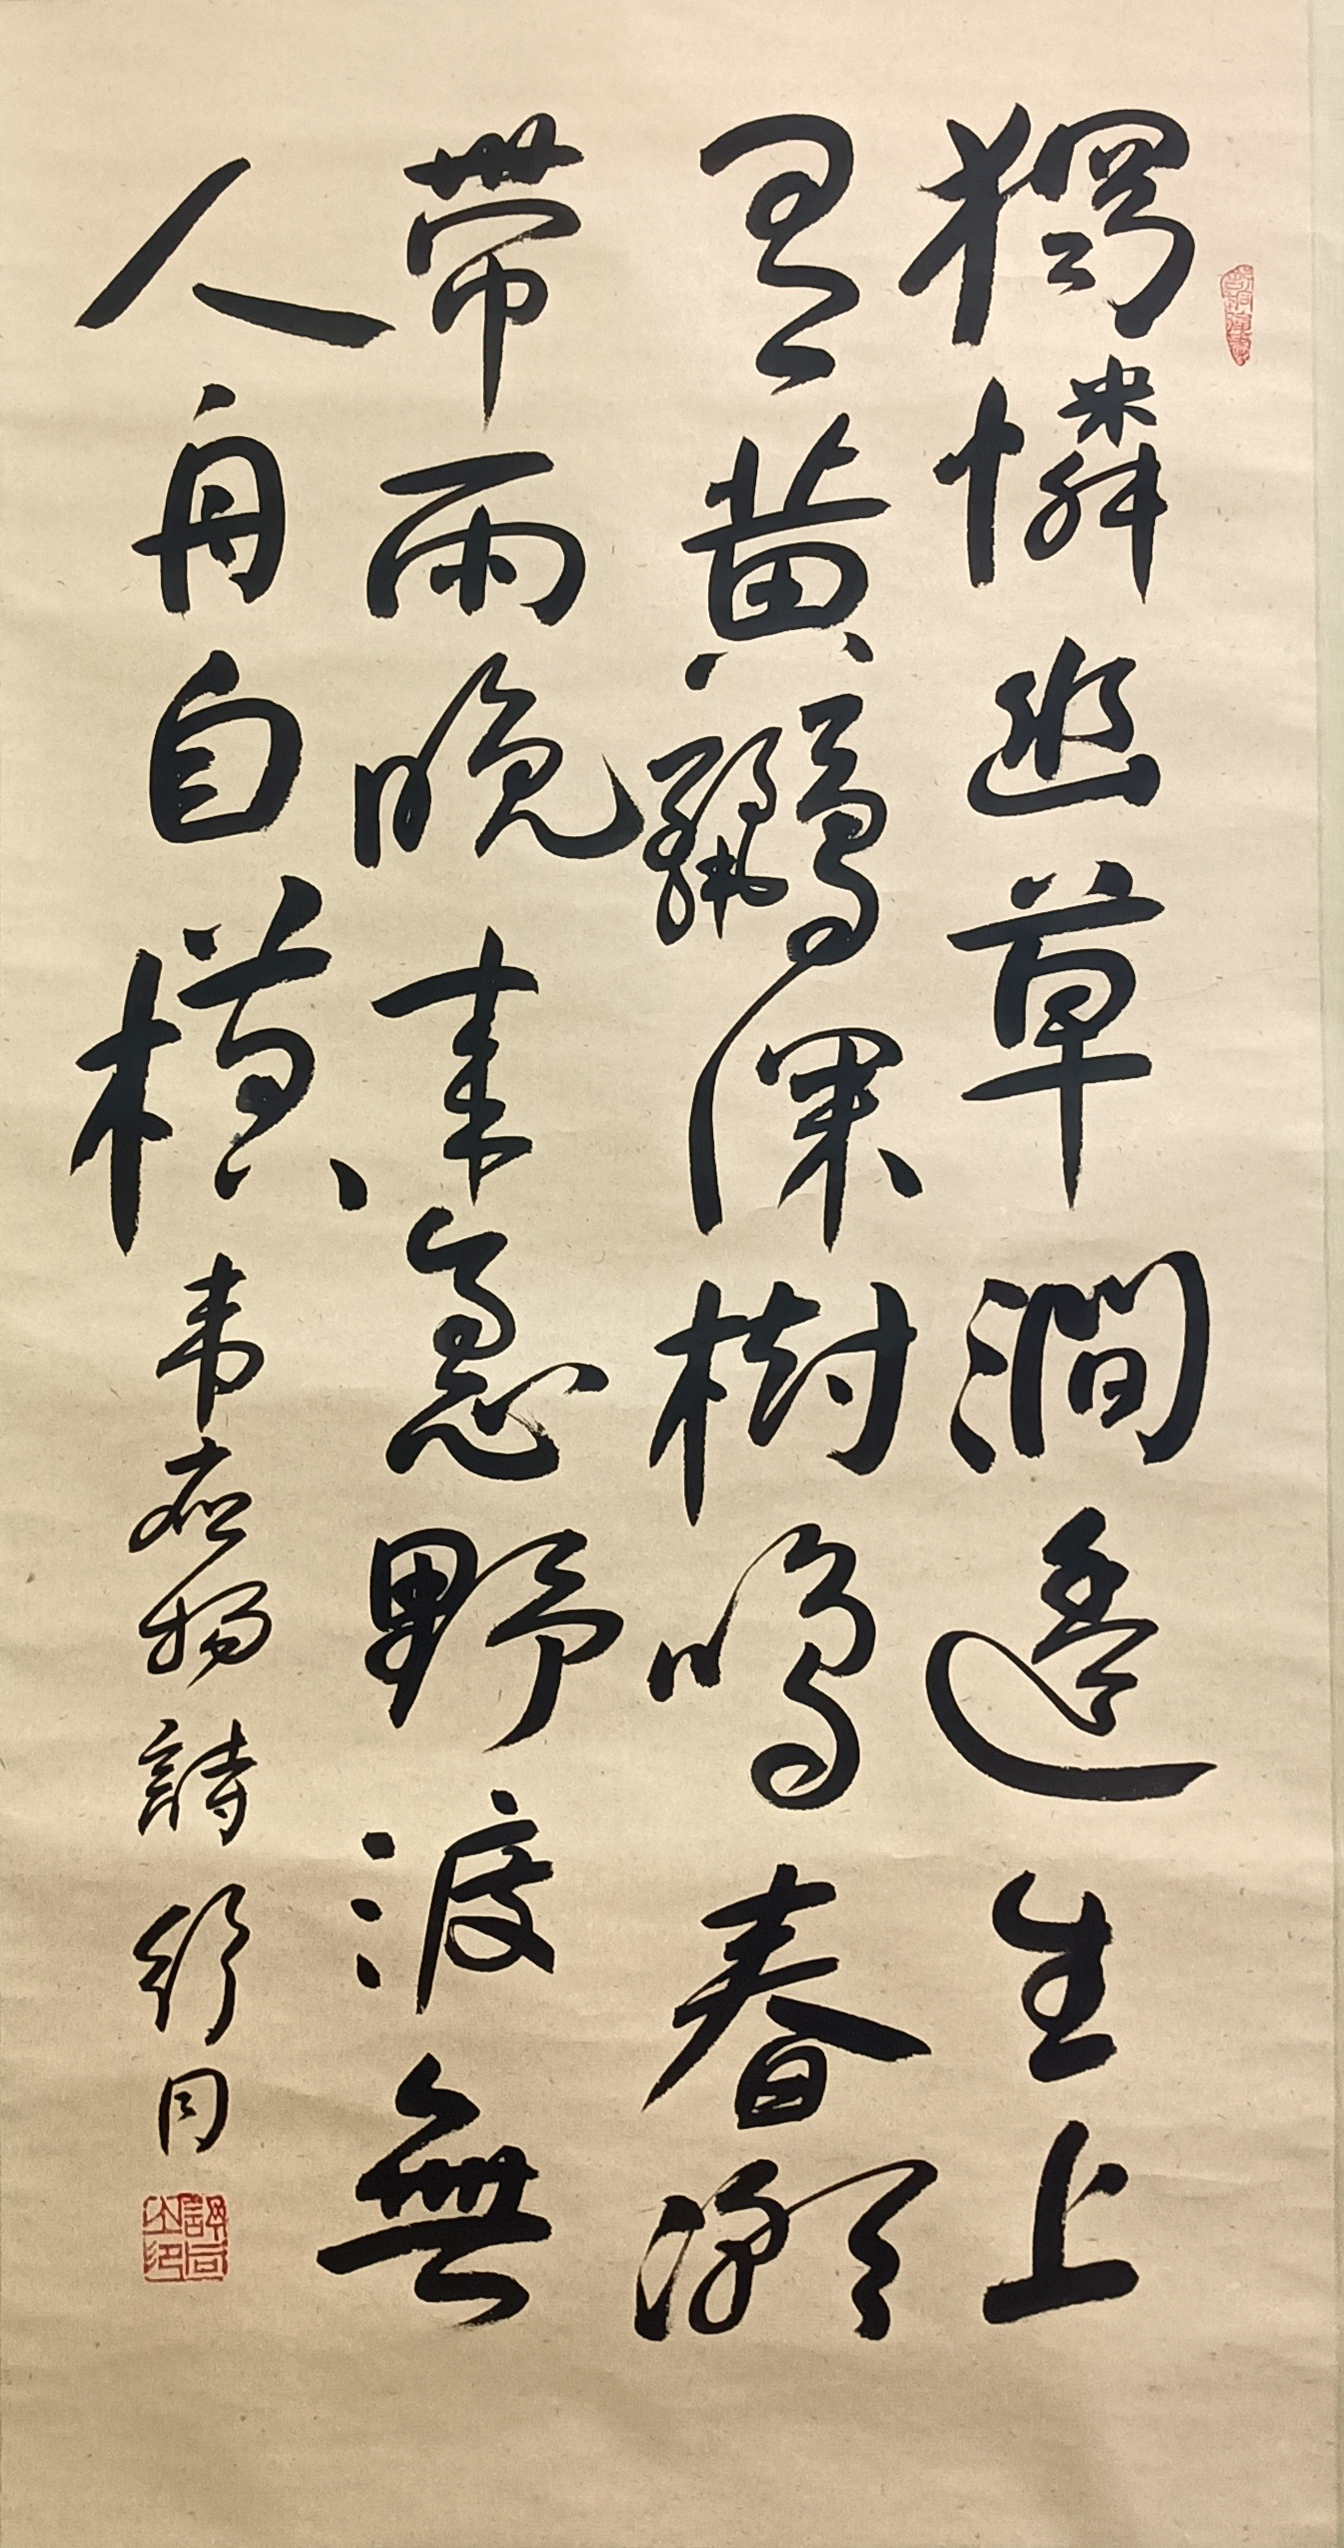 獨憐幽草澗邊生上
有黃鸝深樹鳴春潮
帶雨晚來急野渡無
人舟自橫 韋應物詩 舒同
舒同之印